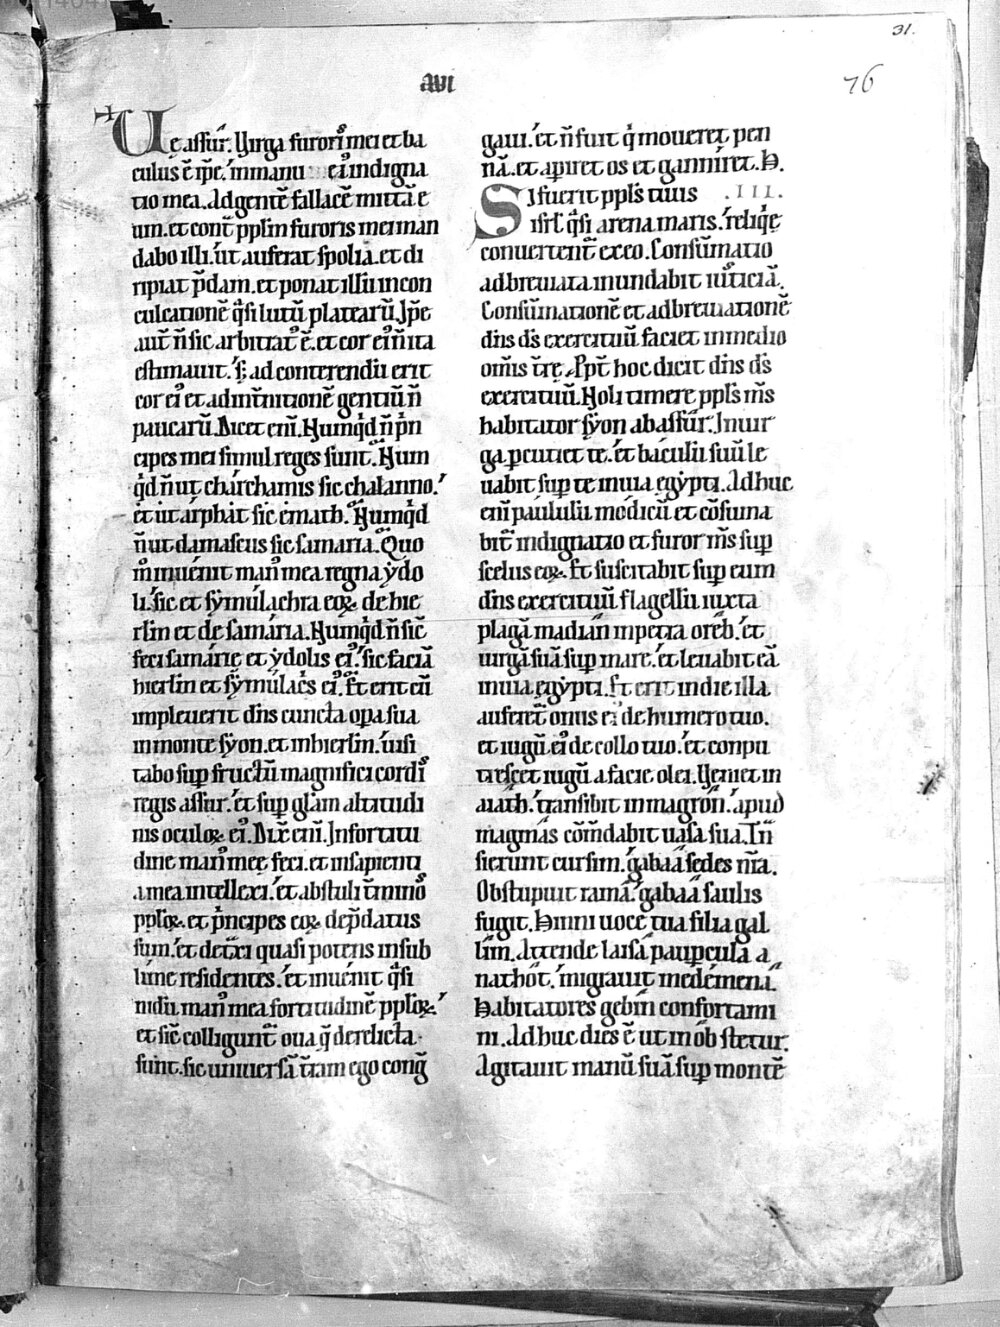 31.
76
AVI
Ue assur̄. Uirga furoriˀ mei et ba
culus ē ip̄e. in manu eiˀ indigna
tio mea. Ad gentē fallacē mittā e
um. et cont̄ pplīn furoris mei man
dabo illi. ut auferat spolia. et di
ripiat p̄dam. et ponat illū in con
culcationē q̄si lutū platearū. Ip̄e
aut̄ n̄ sic arbitrat̄ ē. et cor eiˀ n̄ ita
estimauit. S; ad conterendū erit
cor eiˀ et ad int̄nitionē gentiū n̄
paucarū. Dicet eni. Numqd n̄ p̄n
cipes mei simul reges sunt. Num
qd n̄ ut chárchamis sic chalanno.
et ut árphat sic émath. Numqd
n̄ ut damascus sic samaria. Quo
m̊ inuenit manˀ mea regna ydo
li. sic et symúlachra eoꝝ de hie
rlm et de samária. Numqd n̄ sic̄
feci samárie et ydolis eiˀ. sic faciā
hierlm et symúlacs̄ eiˀ. Et erit cū
impleuerit dns cuncta oꝑa sua
in monte syon. et in hierlm. uisi
tabo suꝑ fructū magnifici cordiˀ
regis assur. et suꝑ gl̄am altitudi
nis oculoꝝ eiˀ. Dix̄ eni. In fortitu
dine manˀ mee feci. et in sapienti
a mea intellexi. et abstuli t̄minoˀ
pploꝝ. et p̄ncipes eoꝝ dep̄datus
sum. et det̄xi quasi potens in sub
lime residentes. et inuenit q̄si
nidū manˀ mea fortitudinē pploꝝ.
et sic̄ colligunt̄ oua q̄ derelicta
sunt. sic uniuersā t̄ram ego cong̃
gaui. et n̄ fuit q̇ moueret pen
nā. et aꝑiret os et ganníret. H.
Si fuerit ppl̄s tuus .III.
isrl̄ q̄si arena maris. reliqe
conuertent̄ ex eo. Consūmatio
adbreuiata inundabit iusticiā.
Consūmationē et adbreuiationē
dn̄s ds̄ exercituū faciet in medio
om̄is t̄re. Ppt̄ hoc dicit dn̄s ds̄
exercituū. Noli timere ppl̄s m̄s
habitator syon ab assur̄. In uir
ga ꝑcutiet te. et baculū suū le
uabit suꝑ te in uia egypti. Adhuc
eni paululū modicū et cōsuma
bit̄ indignatio et furor m̄s suꝑ
scelus eoꝝ. Et suscitabit suꝑ eum
dn̄s exercituū flagellū iuxta
plagā madian in petra oreb. et
uirgā suā suꝑ mare. et leuabit eā
in uia egypti. Et erit in die illa
auferet̄ onus eiˀ de humero tuo.
et iugū eiˀ de collo tuo. et conpu
trescet iugū a facie olei. Ueniet in
aiath. transibit in magron. apud
magmas cōm̄dabit uasa sua. Tn̄
sierunt cursim. gabaa sedes nr̄a.
Obstupuit ramā. gabaa saulis
fugit. Hinni uoce tua filia gal
lim. Attende laisā pauꝑcula a
nathot. migrauit medemena.
Habitatores gebin confortami
ni. Adhuc dies ē ut in nob stetur.
Agitauit manū suā suꝑ montē